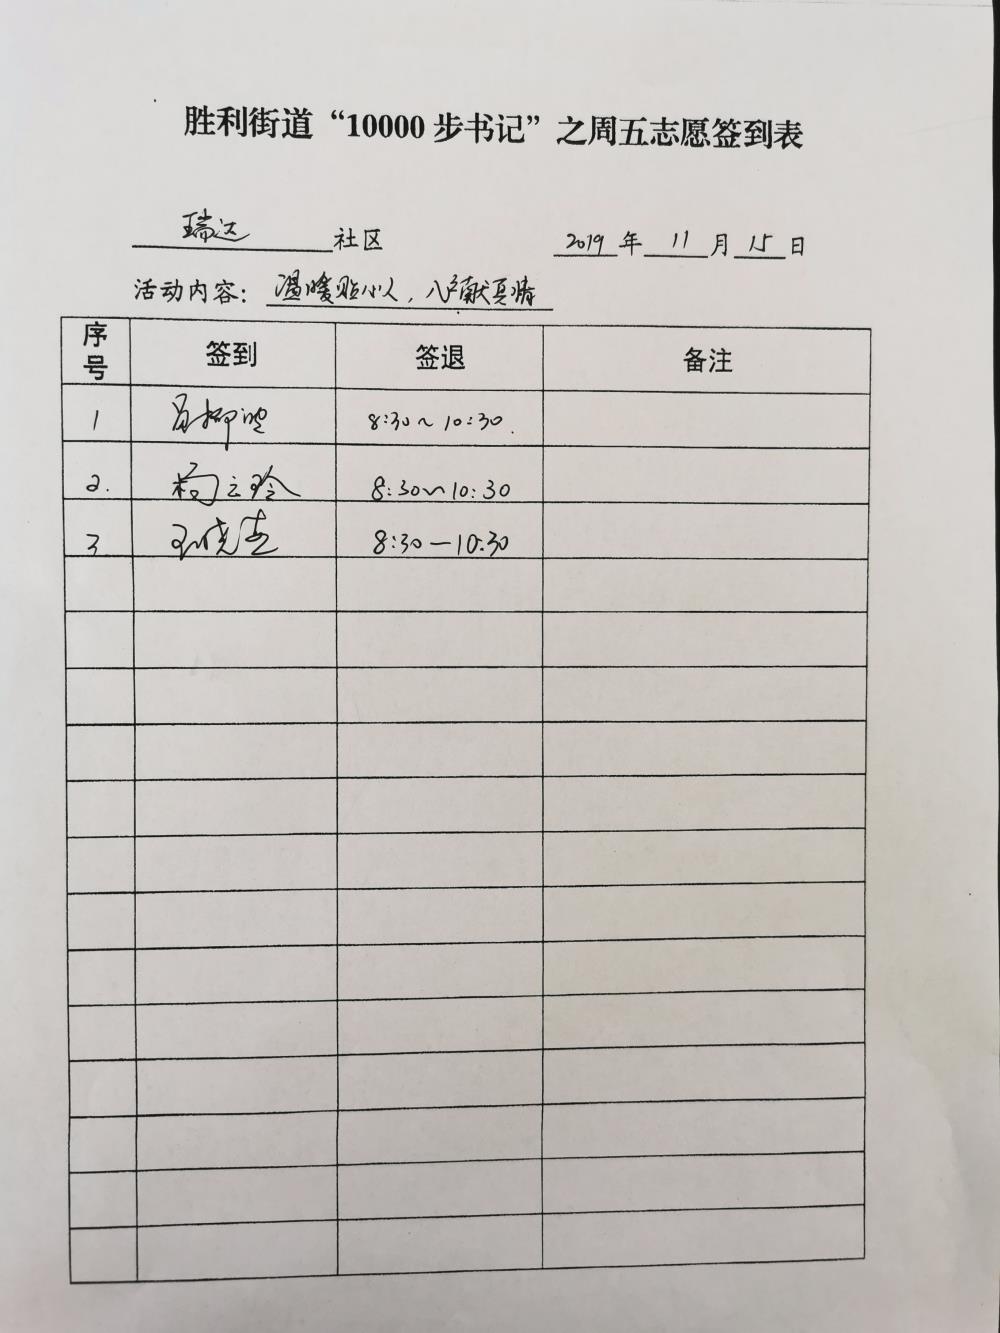 胜利街道“10000步书记”之周五志愿签到表
瑞达 社区 2019 年 11 月 15 日
活动内容: 温暖贴心人,入户献真情
序号 签到 签退 备注
1 8:30~10:30.
2. 杨立玲 8:30~10:30
3 8:30—10:30